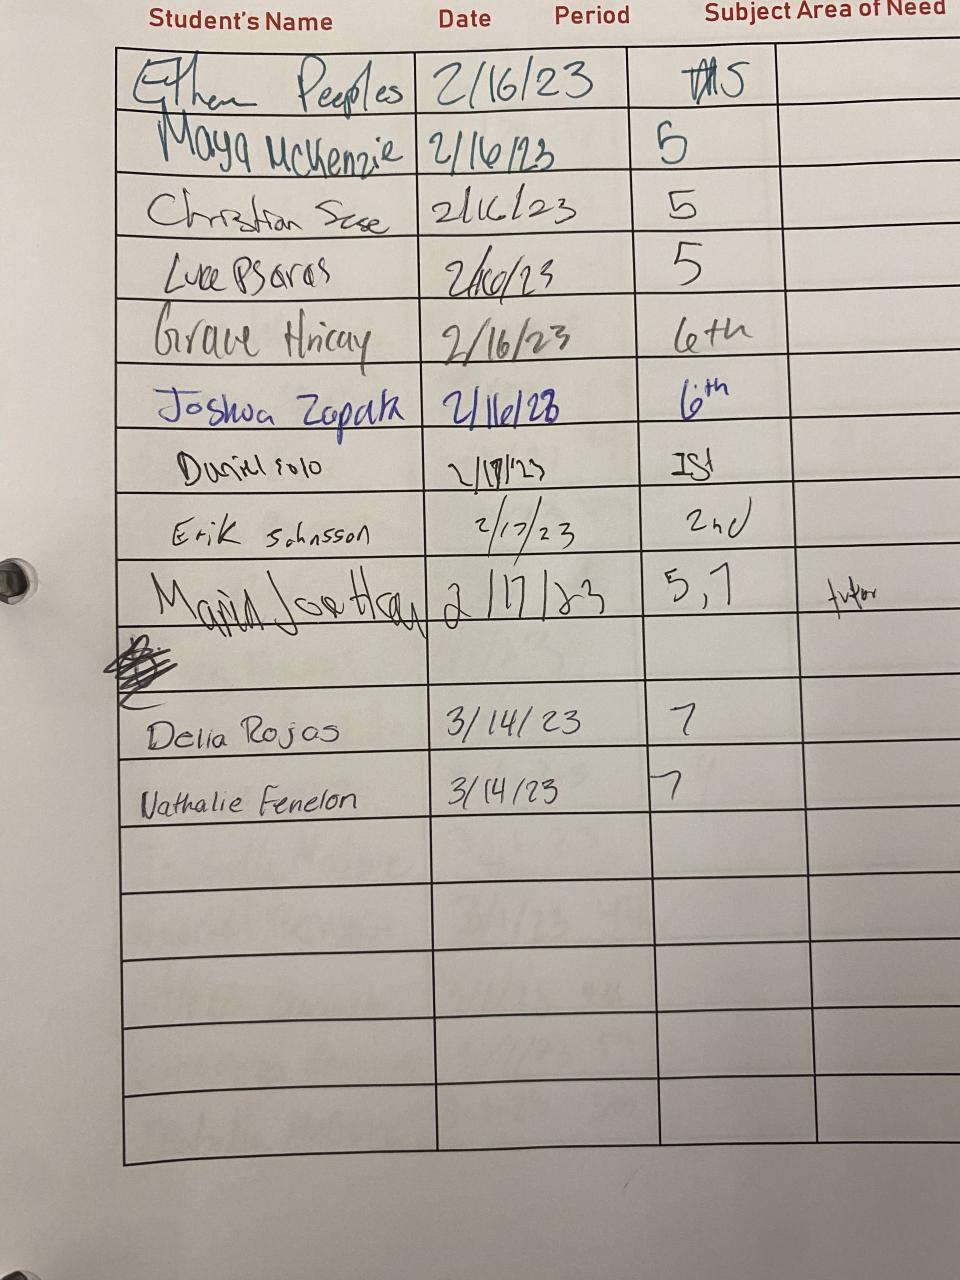 Student's Name Date Period Subject Area of Need
Ethan Peeples 2/16/23 5
Maya McKenzie 2/16/23 5
Christian 2/16/23 5
Luca Psaras 2/16/23 5
Grace Hricay 2/16/23 6th
Joshua Zapata 2/16/23 6th
Daniel solo 2/17/23 1st
Erik 2/17/23 2nd
Maria 2/17/23 5,7 tutor
Delia Rojas 3/14/23 7
Nathalie Fenelon 3/14/23 7